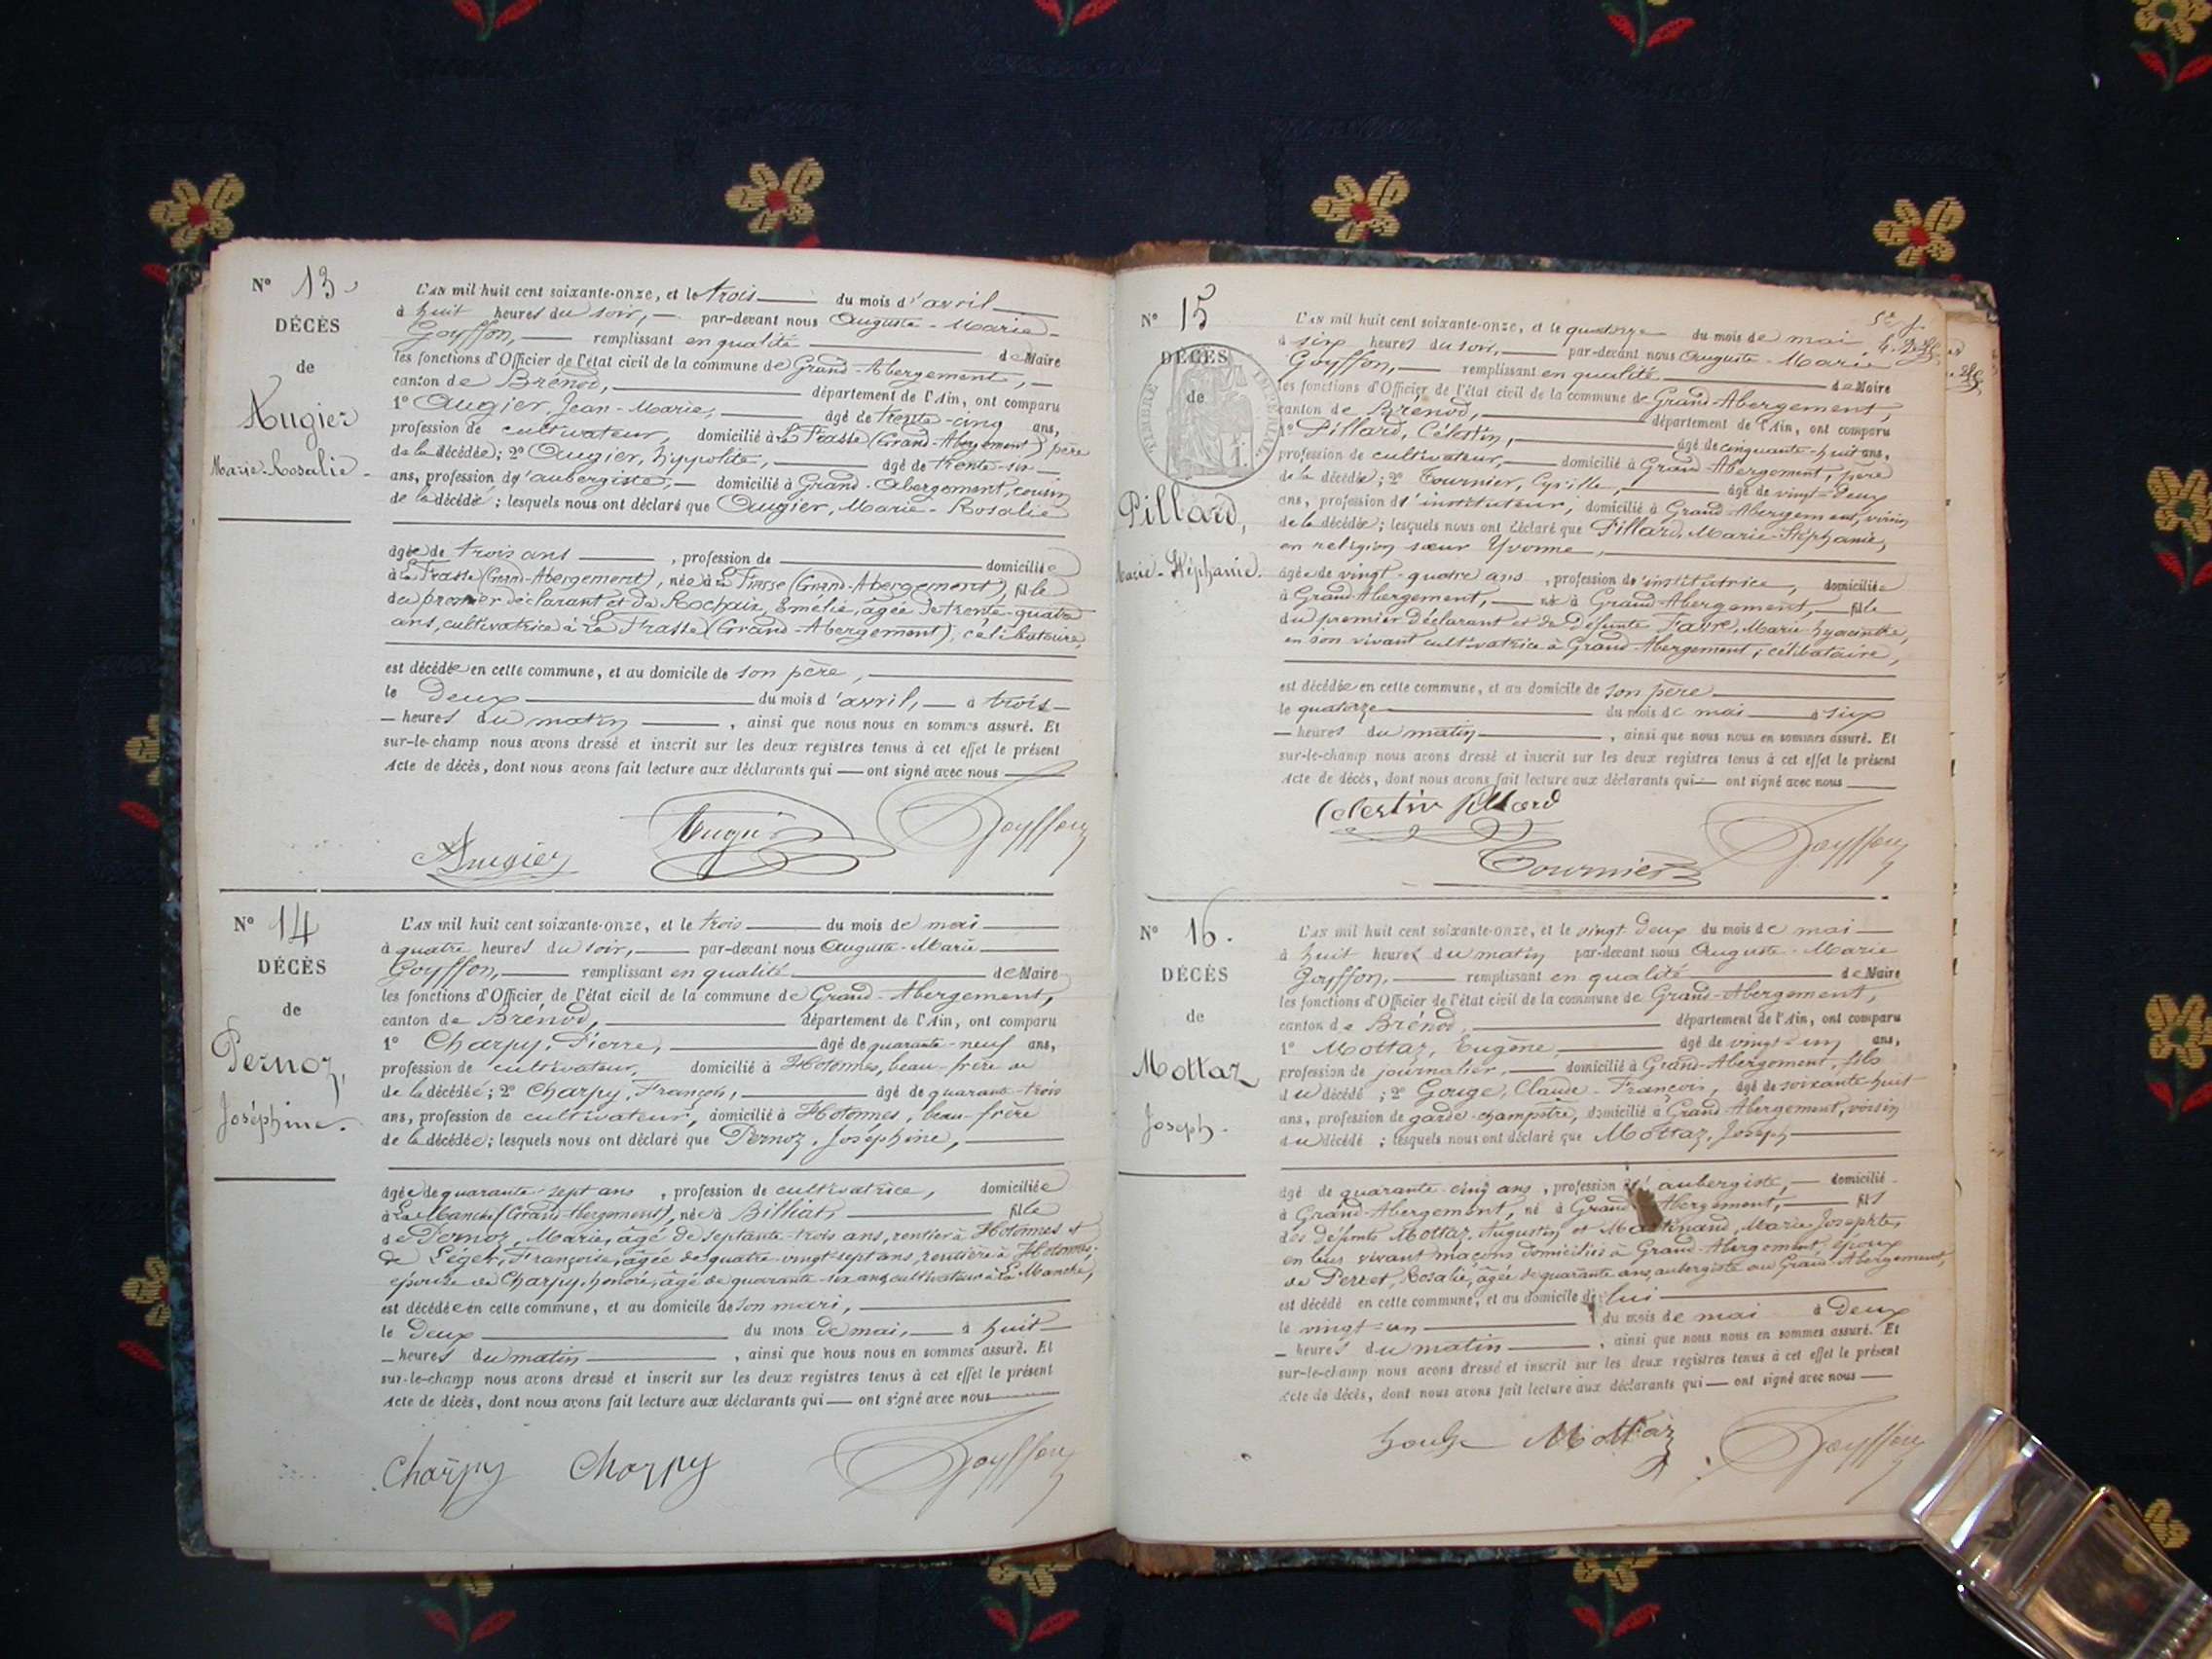 N° 13
DÉCÈS
de
Augier
Marie-Rosalie
L'AN mil huit cent soixante-onze, et le trois du mois d'avril
à huit heures du soir, par-devant nous Auguste-Marie
Goyffon, remplissant en qualité de Maire
les fonctions d'Officier de l'état civil de la commune de Grand-Abergement,
canton de Brénod, département de l'Ain, ont comparu
1° Augier, Jean-Marie, âgé de trente-cinq ans,
profession de cultivateur, domicilié à La Frasse (Grand-Abergement) père
de la décédée; 2° Augier, hippolite, âgé de trente-six
ans, profession d'aubergiste, domicilié à Grand-Abergement, cousin
de la décédée; lesquels nous ont déclaré que Augier, Marie-Rosalie
âgée de trois ans, profession de domiciliée
à La Frasse (Grand-Abergement), née à La Frasse (Grand-Abergement), fille
du premier déclarant et de Rochaix, Emélie, âgée de trente-quatre
ans, cultivatrice à La Frasse (Grand-Abergement); célibataire,
est décédée en cette commune, et au domicile de son père,
le deux du mois d'avril, à trois
heures du matin, ainsi que nous nous en sommes assuré. Et
sur-le-champ nous avons dressé et inscrit sur les deux registres tenus à cet effet le présent
Acte de décès, dont nous avons fait lecture aux déclarants qui ont signé avec nous
Augier Augier Goyffon
N° 14
DÉCÈS
de
Pernoz,
Joséphine.
L'AN mil huit cent soixante-onze, et le trois du mois de mai
à quatre heures du soir, par-devant nous Auguste-Marie
Goyffon, remplissant en qualité de Maire
les fonctions d'Officier de l'état civil de la commune de Grand-Abergement,
canton de Brénod, département de l'Ain, ont comparu
1° Charpy, Pierre, âgé de quarante-neuf ans,
profession de cultivateur, domicilié à Hotonnes, beau-frère de
de la décédée; 2° Charpy, François, âgé de quarante-trois
ans, profession de cultivateur, domicilié à Hotonnes, beau-frère
de la décédée; lesquels nous ont déclaré que Pernoz, Joséphine,
âgée de quarante-sept ans, profession de cultivatrice, domiciliée
à La Manche (Grand-Abergement), née à Billiat, fille
de Pernoz, Marie, âgé de septante-trois ans, rentier à Hotonnes et
de Léger, Françoise, âgée de quatre-vingt-sept ans, rentière à Hotonnes;
épouse de Charpy, honoré, âgé de quarante-six ans, cultivateur à La Manche,
est décédée en cette commune, et au domicile de son mari,
le deux du mois de mai, à huit
heures du matin, ainsi que nous nous en sommes assuré. Et
sur-le-champ nous avons dressé et inscrit sur les deux registres tenus à cet effet le présent
Acte de décès, dont nous avons fait lecture aux déclarants qui ont signé avec nous
Charpy Charpy Goyffon
N° 15
DÉCÈS
de
TIMBRE IMPÉRIAL
Pillard,
Marie-Stéphanie.
L'AN mil huit cent soixante-onze, et le quatorze du mois de mai
à six heures du soir, par-devant nous Auguste-Marie
Goyffon, remplissant en qualité de Maire
les fonctions d'Officier de l'état civil de la commune de Grand-Abergement,
canton de Brénod, département de l'Ain, ont comparu
1° Pillard, Célestin, âgé de cinquante-huit ans,
profession de cultivateur, domicilié à Grand-Abergement, père
de la décédée; 2° Tournier, Cyrille, âgé de vingt-deux
ans, profession d'instituteur, domicilié à Grand-Abergement, voisin
de la décédée; lesquels nous ont déclaré que Pillard, Marie-Stéphanie,
en religion sœur Yvonne,
âgée de vingt-quatre ans, profession d'institutrice, domiciliée
à Grand-Abergement, née à Grand-Abergement, fille
du premier déclarant et de défunte Favre, Marie-hyacinthe,
en son vivant cultivatrice à Grand-Abergement; célibataire,
est décédée en cette commune, et au domicile de son père
le quatorze du mois de mai à six
heures du matin, ainsi que nous nous en sommes assuré. Et
sur-le-champ nous avons dressé et inscrit sur les deux registres tenus à cet effet le présent
Acte de décès, dont nous avons fait lecture aux déclarants qui ont signé avec nous
Celestin pillard Goyffon
Tournier
N° 16.
DÉCÈS
de
Mottaz
Joseph.
L'AN mil huit cent soixante-onze, et le vingt-deux du mois de mai
à huit heures du matin par-devant nous Auguste-Marie
Goyffon, remplissant en qualité de Maire
les fonctions d'Officier de l'état civil de la commune de Grand-Abergement,
canton de Brénod, département de l'Ain, ont comparu
1° Mottaz, Eugène âgé de vingt-un ans,
profession de journalier, domicilié à Grand-Abergement, fils
du décédé; 2° Gouge, Claude-François, âgé de soixante-huit
ans, profession de garde-champêtre, domicilié à Grand-Abergement, voisin
du décédé; lesquels nous ont déclaré que Mottaz, Joseph
âgé de quarante-cinq ans, profession d'aubergiste, domicilié
à Grand-Abergement, né à Grand-Abergement, fils
des défunts Mottaz, Augustin et Martinand, Marie Josephte,
en leur vivant maçons domiciliés à Grand-Abergement, époux
de Perret, Rosalie, âgée de quarante ans, aubergiste au Grand-Abergement,
est décédé en cette commune, et au domicile de lui
le vingt-un du mois de mai à deux
heures du matin, ainsi que nous nous en sommes assuré. Et
sur-le-champ nous avons dressé et inscrit sur les deux registres tenus à cet effet le présent
Acte de décès, dont nous avons fait lecture aux déclarants qui ont signé avec nous
Mottaz Goyffon